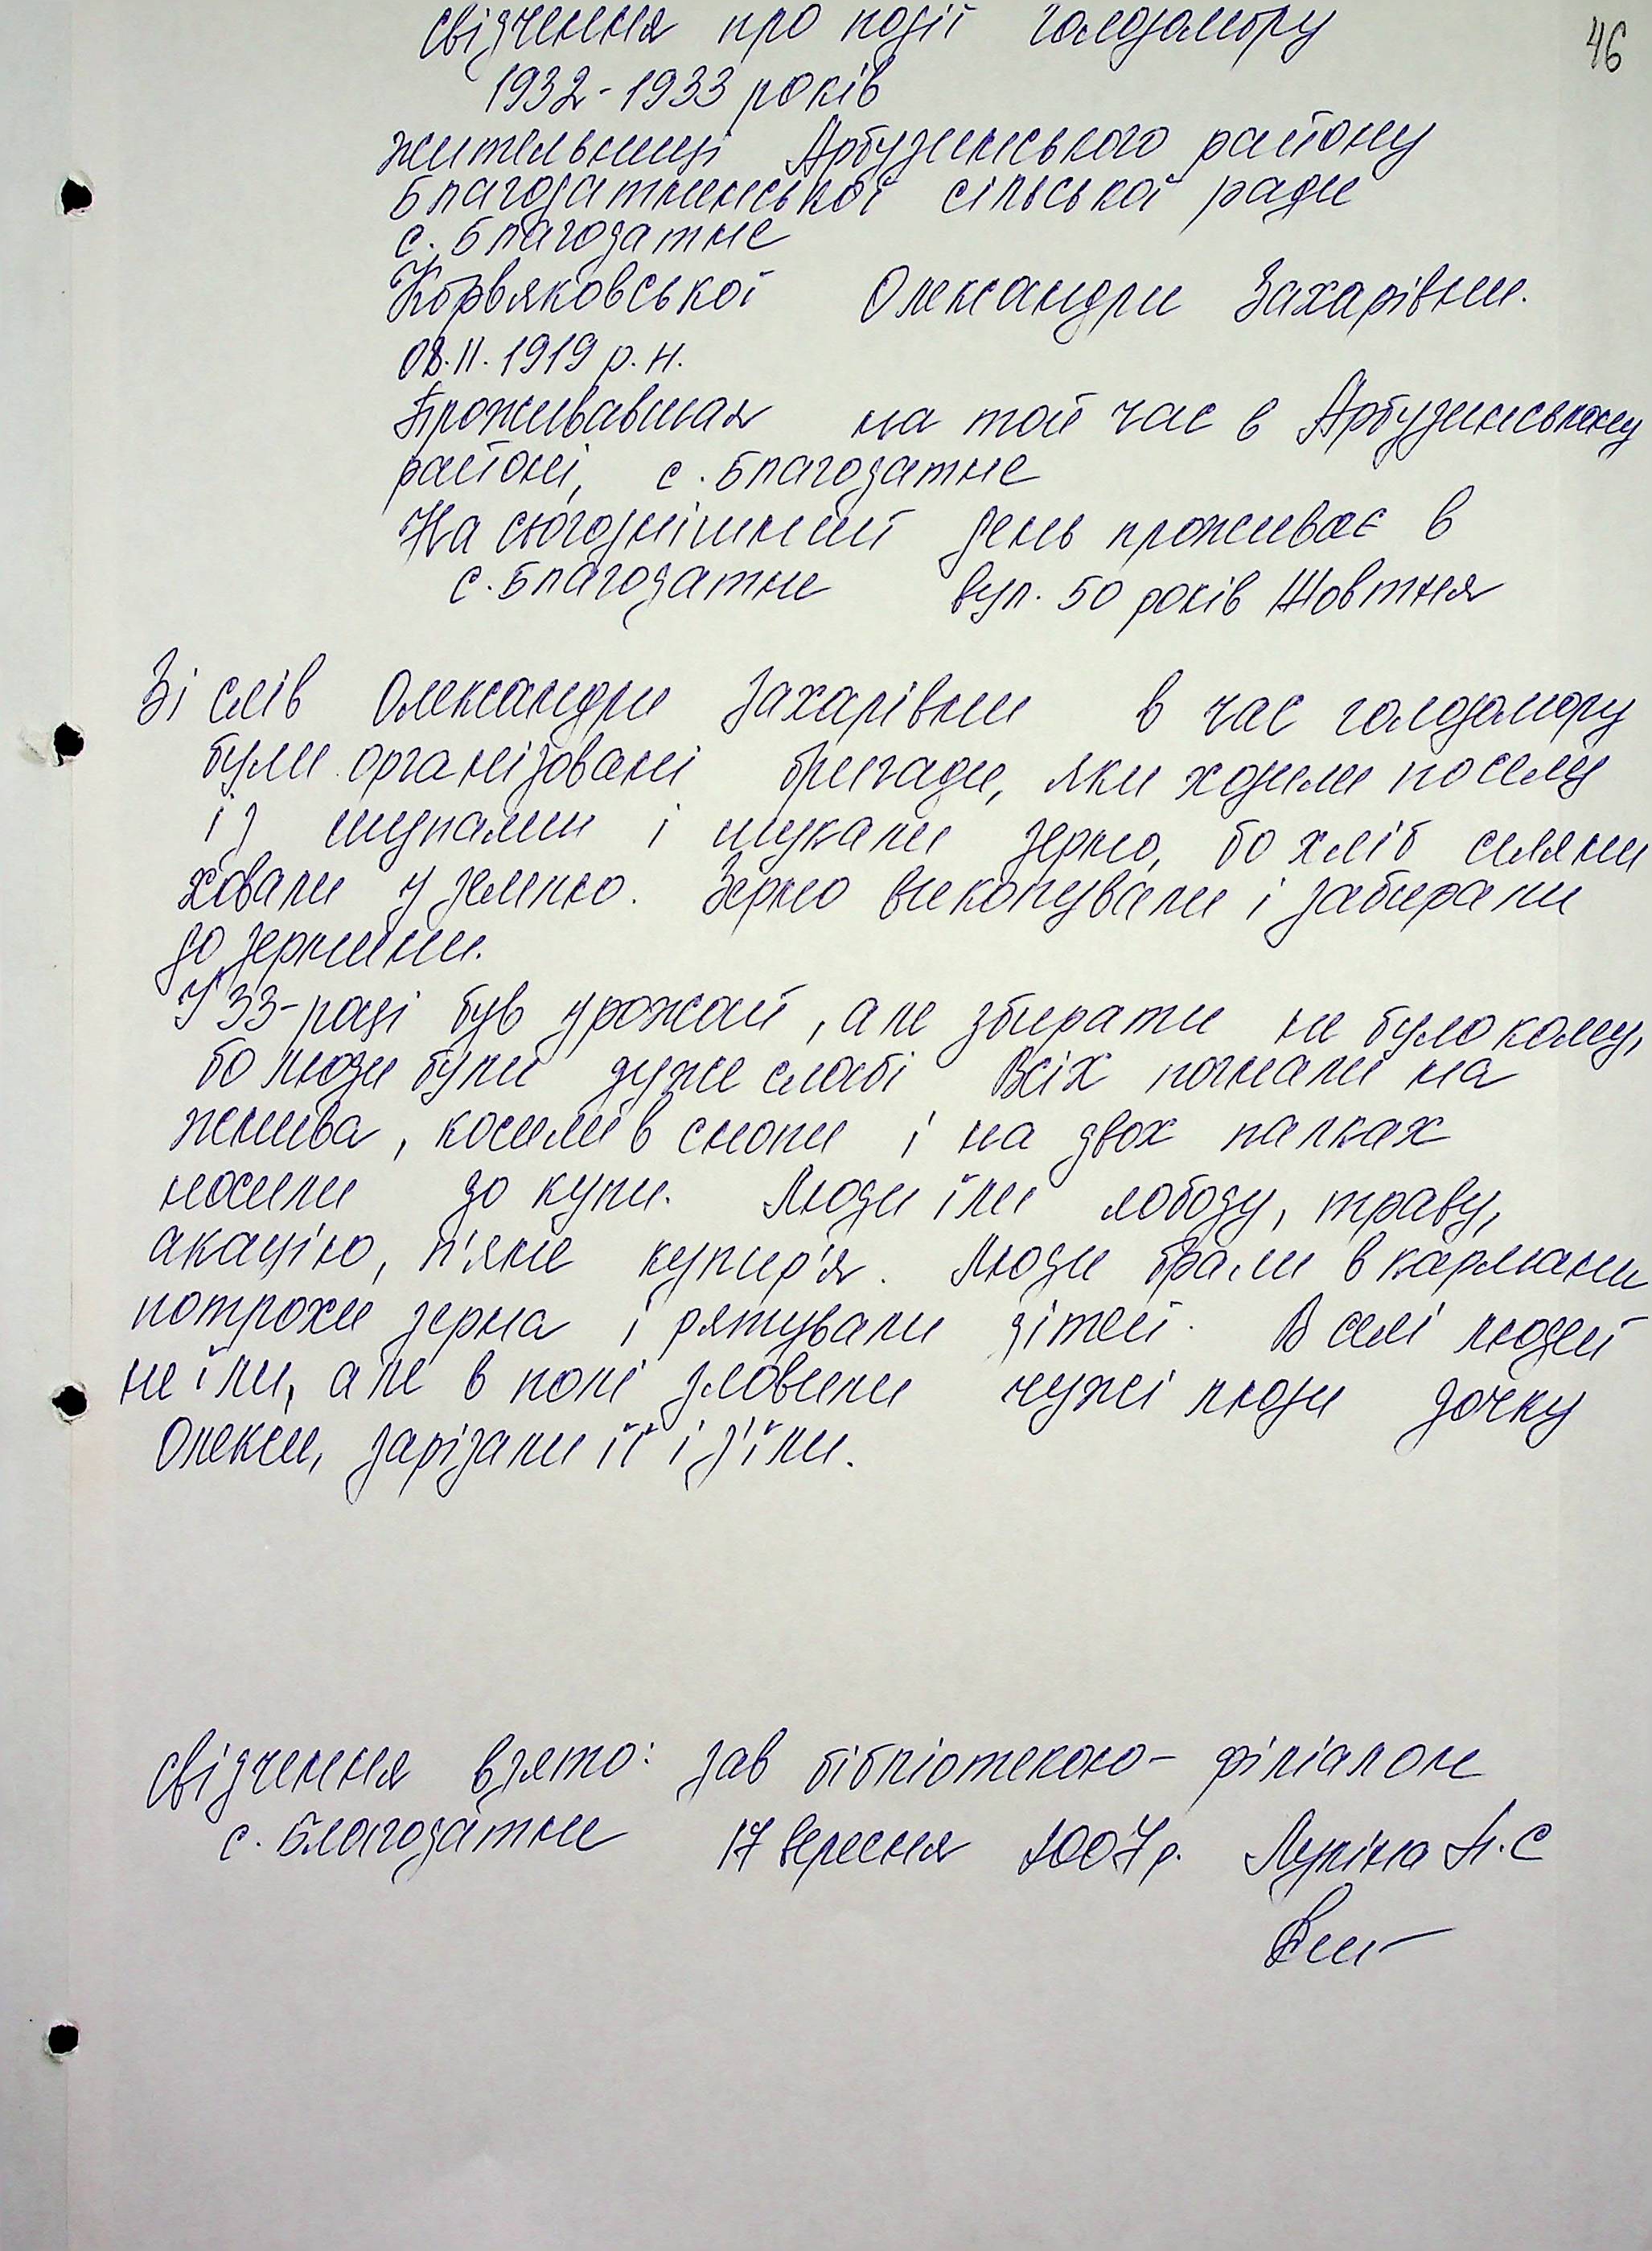 46
свідчення про події голодомору
1932-1933 років
жительниці Арбузинського району
Благодатненської сільської ради
с. Благодатне
Олександри Захарівни.
08.11.1919 р.н.
Проживавшая на той час в Арбузинському
районі, с. Благодатне
На сьогоднішний день проживає в
с. Благодатне вул. 50 років Жовтня
Зі слів Олександри Захарівни в час голодомору
були організовані бригади, яки ходили по селу
із щупами і шукали зерно, бо хліб селяни
ховали у землю. Зерно викопували і забирали
до зернини.
У 33-році був урожай, але збирати не було кому,
бо люди були дуже слабі Всіх погнали на
жнива, косили в снопи і на двох палках
носили до купи. Люди їли лободу, траву,
акацію, п'яне купир'я. Люди брали в кармани
потрохи зерна і рятували дітей. В селі людей
не їли, але в полі зловили чужі люди дочку
Олекси, зарізали її і з'їли.
свідчення взято: зав бібліотекою- філіалом
с. Благодатне 17 вересня 2007р. Лупіна Н.С